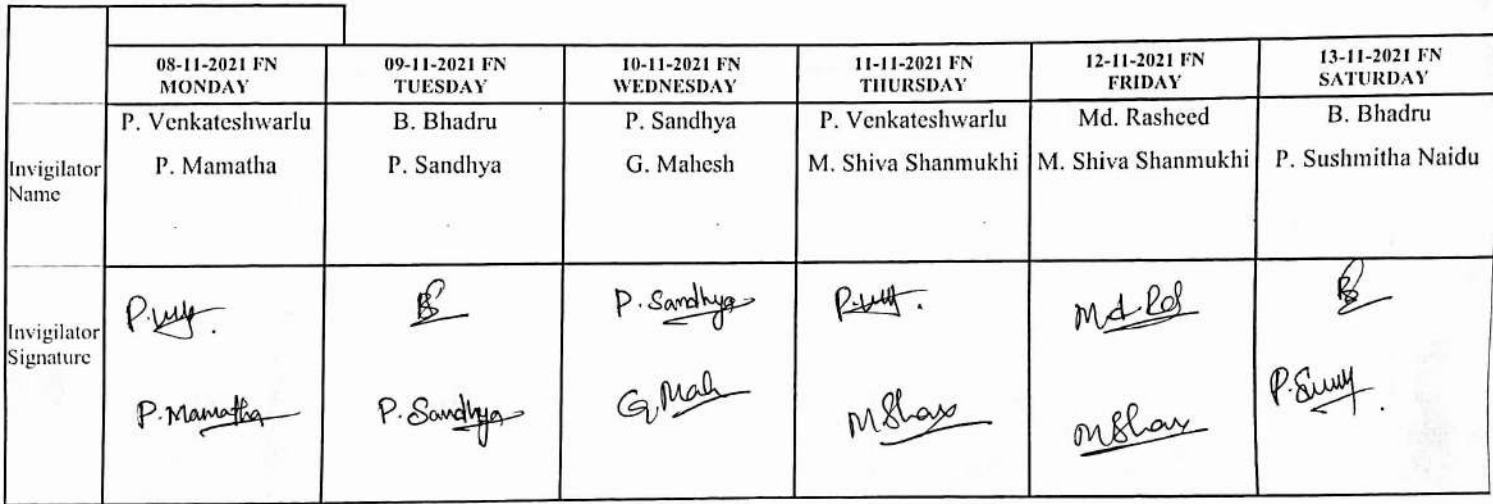 08-11-2021 FN
MONDAY
09-11-2021 FN
TUESDAY
10-11-2021 FN
WEDNESDAY
11-11-2021 FN
THURSDAY
12-11-2021 FN
FRIDAY
13-11-2021 FN
SATURDAY
Invigilator
Name
P. Venkateshwarlu
P. Mamatha
B. Bhadru
P. Sandhya
P. Sandhya
G. Mahesh
P. Venkateshwarlu
M. Shiva Shanmukhi
Md. Rasheed
M. Shiva Shanmukhi
B. Bhadru
P. Sushmitha Naidu
Invigilator
Signature
P. Mamatha
P. Sandhya
P. Sandhya
G. Mah